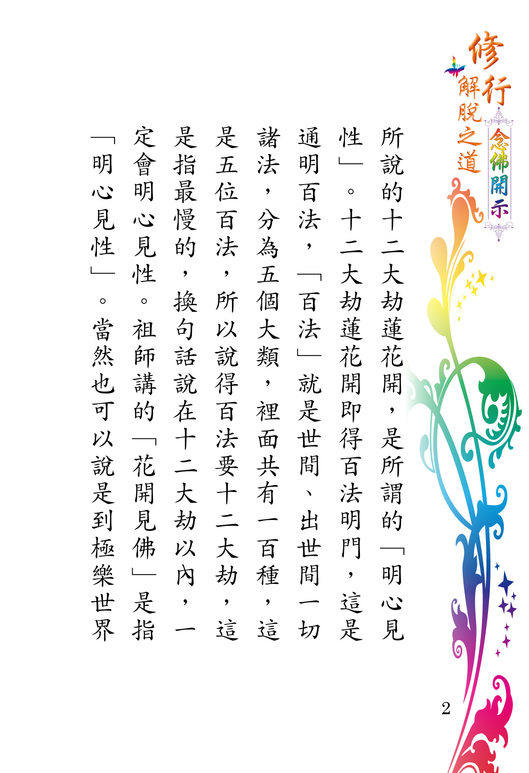 修行
解脫之道
念佛開示
所說的十二大劫蓮花開，是所謂的「明心見
性」。十二大劫蓮花開即得百法明門，這是
通明百法，「百法」就是世間、出世間一切
諸法，分為五個大類，裡面共有一百種，這
是五位百法，所以說得百法要十二大劫，這
是指最慢的，換句話說在十二大劫以內，一
定會明心見性。祖師講的「花開見佛」是指
「明心見性」。當然也可以說是到極樂世界
2